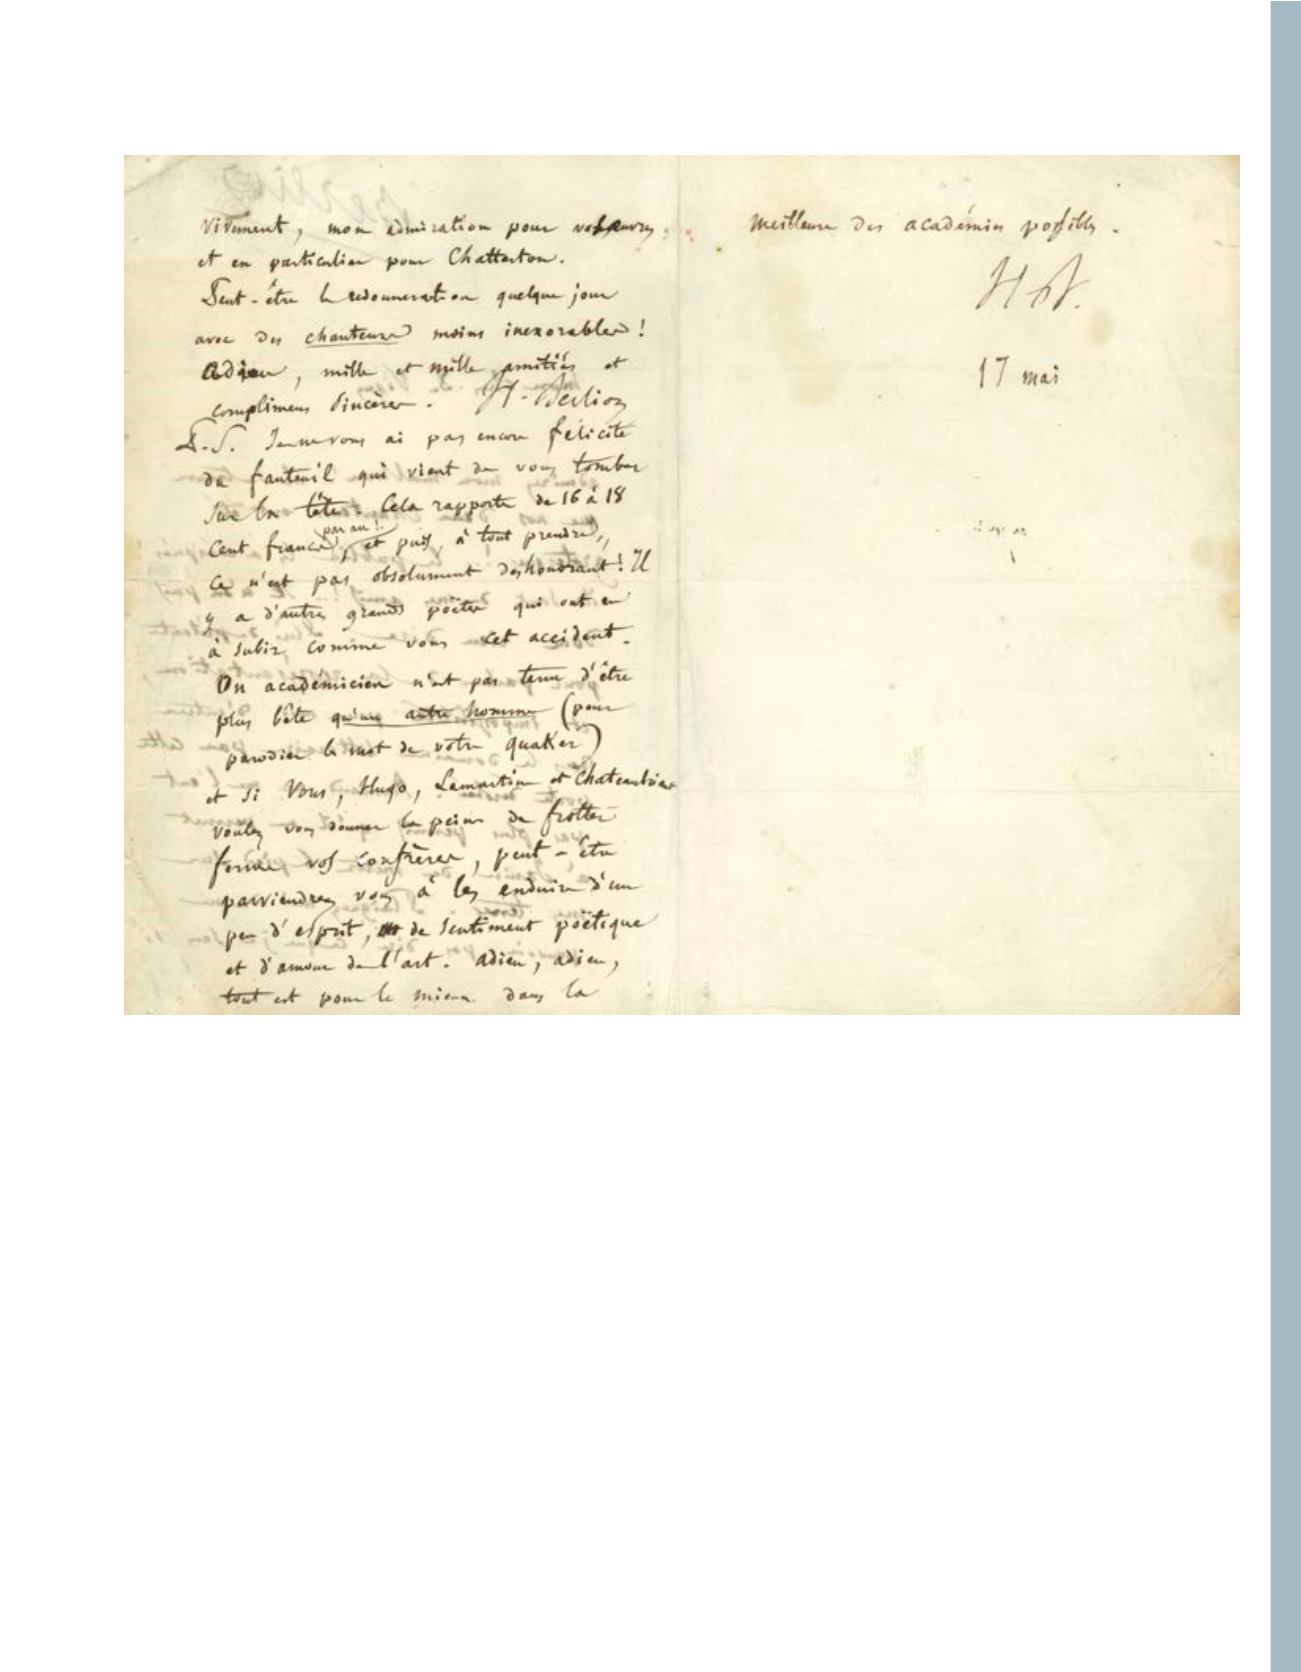 vivement, mon admiration pour vos œuvres
et en particulier pour Chatterton.
Peut-être le redonnerat-on quelque jour
avec des chanteurs moins inexorables!
Adieu, mille et mille amitiés et
complimens sincères. H. Berlioz
P.S. Je ne vous ai pas encore félicité
du fauteuil qui vient de vous tomber
sur la tête. Cela rapporte de 16 à 18
Cent francs par an!, et puis, à tout prendre,
ce n'est pas absolument deshonorant! Il
y a d'autres grands poëtes qui ont eu
à subir comme vous cet accident.
On académicien n'est pas tenu d'être
plus bête qu'un autre homme (pour
parodier le mot de votre quaker)
et si Vous, Hugo, Lamartine et Chateaubriant
voulez vous donner la peine de frotter
ferme vos confrères, peut-être
parviendrez vous à les enduire d'un
peu d'esprit, de sentiment poëtique
et d'amour de l'art. adieu, adieu,
tout est pour le mieux dans la
meilleure des académies possibles.
H B.
17 mai